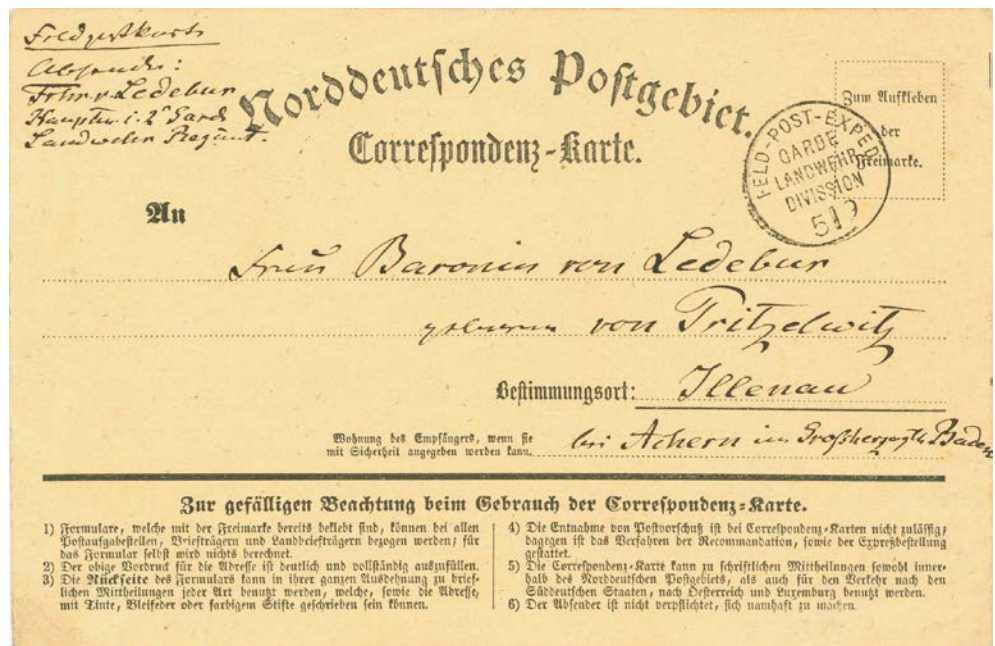 Feldpostkarte
Absender:
Frhr. v. Ledebur
Hauptm. i. 2ⁿ Garde
Landwehr Regimt.
Norddeutsches Postgebiet.
Correspondenz-Karte.
Zum Aufkleben
der
Freimarke.
FELD-POST-EXPED
GARDE
LANDWEHR
DIVISION
5 9
An
Frau Baronin von Ledebur
geborenen von Tritzelwitz
Bestimmungsort: Illenau
Wohnung des Empfängers, wenn sie
mit Sicherheit angegeben werden kann. bei Achern im Großherzogth. Baden
Zur gefälligen Beachtung beim Gebrauch der Correspondenz-Karte.
1) Formulare, welche mit der Freimarke bereits beklebt sind, können bei allen
Postaufgabestellen, Briefträgern und Landbriefträgern bezogen werden; für
das Formular selbst wird nichts berechnet.
2) Der obige Vordruck für die Adresse ist deutlich und vollständig auszufüllen.
3) Die Rückseite des Formulars kann in ihrer ganzen Ausdehnung zu brief-
lichen Mittheilungen jeder Art benutzt werden, welche, sowie die Adresse,
mit Tinte, Bleifeder oder farbigem Stifte geschrieben sein können.
4) Die Entnahme von Postvorschuß ist bei Correspondenz-Karten nicht zulässig;
dagegen ist das Verfahren der Recommandation, sowie der Expreßbestellung
gestattet.
5) Die Correspondenz-Karte kann zu schriftlichen Mittheilungen sowohl inner-
halb des Norddeutschen Postgebiets, als auch für den Verkehr nach den
Süddeutschen Staaten, nach Oesterreich und Luxemburg benutzt werden.
6) Der Absender ist nicht verpflichtet, sich namhaft zu machen.